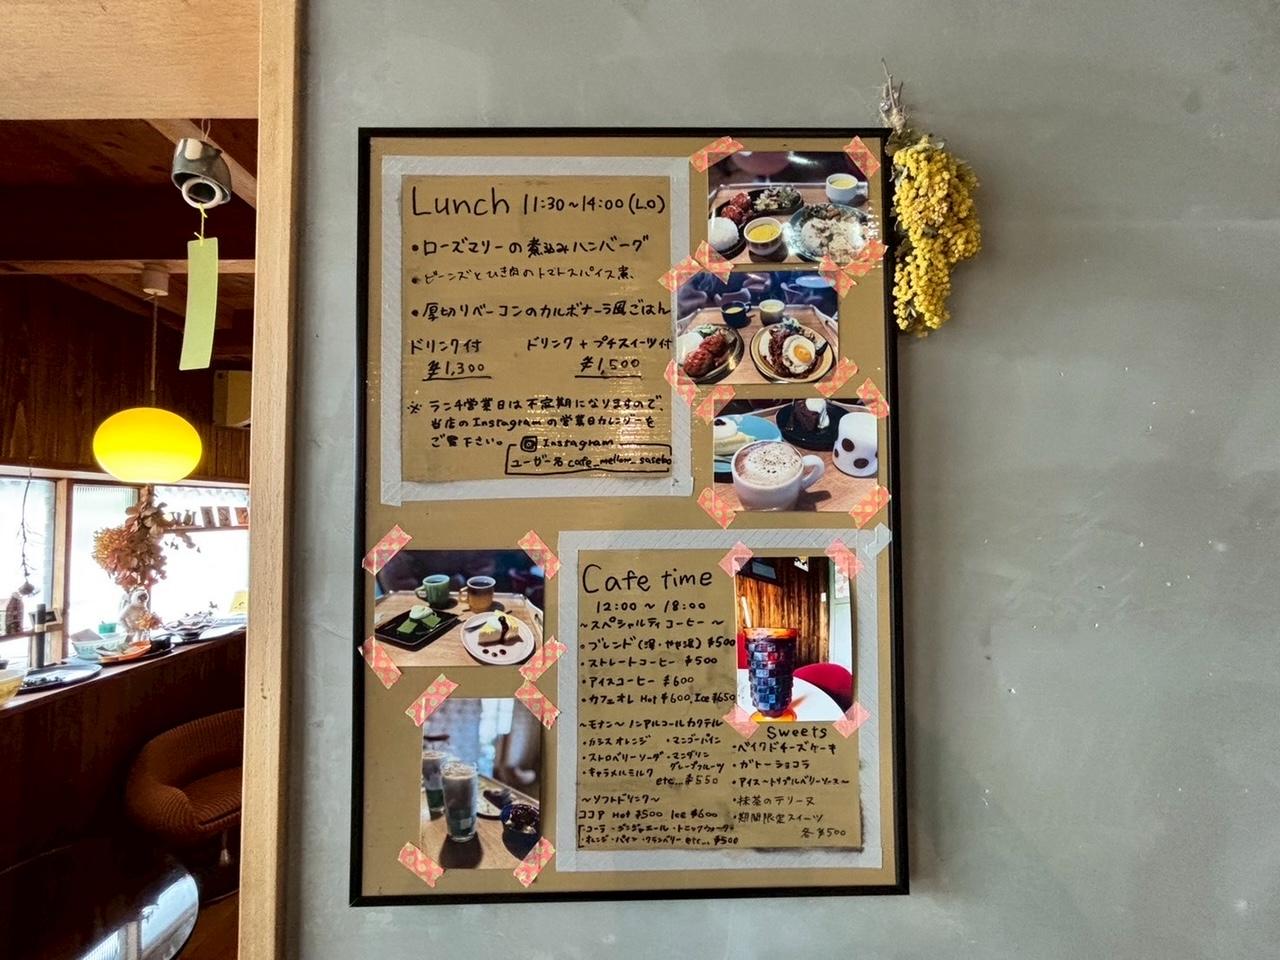 Lunch 11:30~14:00 (L.O)
・ローズマリーの煮込みハンバーグ
・ビーンズとひき肉のトマトスパイス煮
・厚切りベーコンのカルボナーラ風ごはん
ドリンク付 ドリンク+プチスイーツ付
¥1,300 ¥1,500
※ ランチ営業日は不定期になりますので、
当店のInstagramの営業日カレンダーを
ご覧下さい。 Instagram
ユーザー名 cafe_mellow_sasebo
Cafe time
12:00 ~ 18:00
~スペシャルティコーヒー~
・ブレンド(深・やや深) ¥500
・ストレートコーヒー ¥500
・アイスコーヒー ¥600
・カフェオレ Hot ¥600 Ice ¥650
~モナン~ノンアルコールカクテル
・カシスオレンジ ・マンゴーパイン
・ストロベリーソーダ ・マンダリン
・キャラメルミルク グレープフルーツ
etc... ¥550
~ソフトドリンク~
ココア Hot ¥500 Ice ¥600
・コーラ ・ジンジャエール ・トニックウォーター
・オレンジ ・パイン ・クランベリー etc... ¥500
Sweets
・ベイクドチーズケーキ
・ガトーショコラ
・アイス~トリプルベリーソース~
・抹茶のテリーヌ
・期間限定スイーツ
各 ¥500